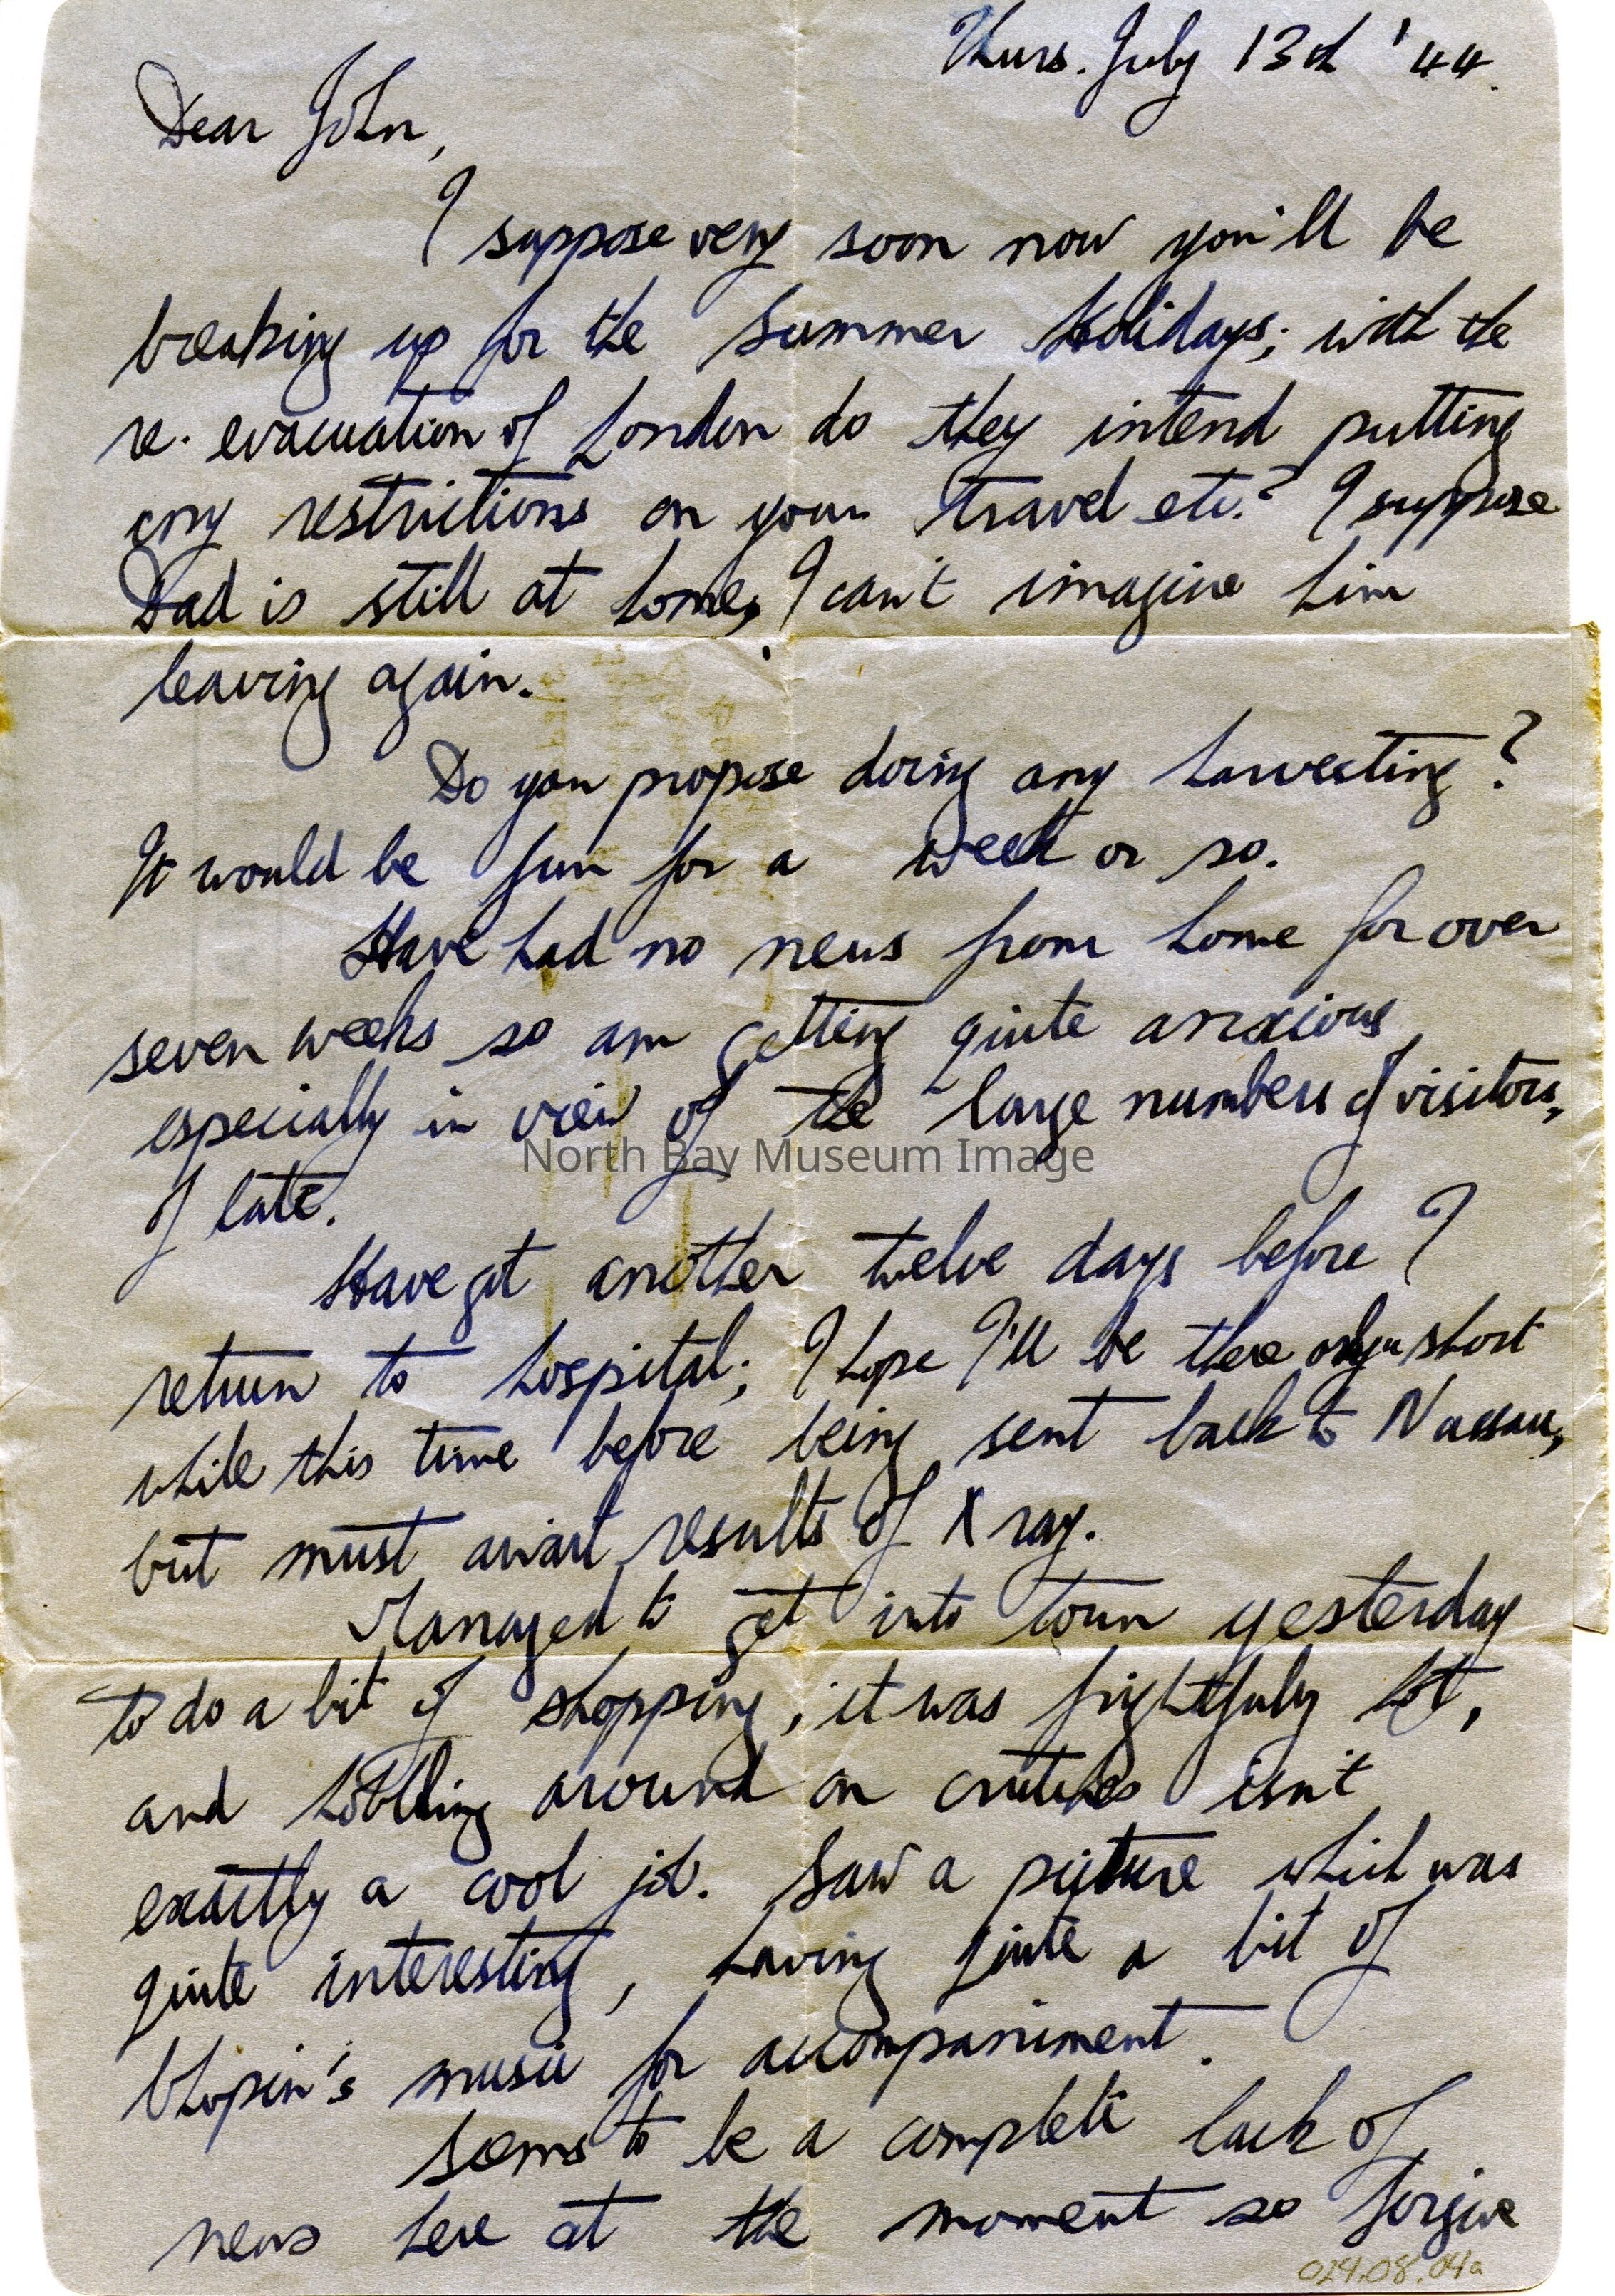 Thurs. July 13th '44.
Dear John,
I suppose very soon now you'll be
breaking up for the Summer Holidays; with the
re-evacuation of London do they intend putting
any restrictions on your travel etc.? I suppose
Dad is still at home, I can't imagine him
leaving again.
Do you propose doing any harvesting?
It would be fun for a week or so.
Have had no news from home for over
seven weeks so am getting quite anxious
especially in view of the large numbers of visitors,
of late.
Have got another twelve days before I
return to hospital; I hope I'll be there only a short
while this time before being sent back to Nassau,
but must await results of X ray.
Managed to get into town yesterday
to do a bit of shopping; it was frightfully hot,
and hobbling around on crutches isn't
exactly a cool job. Saw a picture which was
quite interesting, having quite a bit of
Chopin's music for accompaniment.
Seems to be a complete lack of
news here at the moment so forgive
024.08.04a
North Bay Museum Image